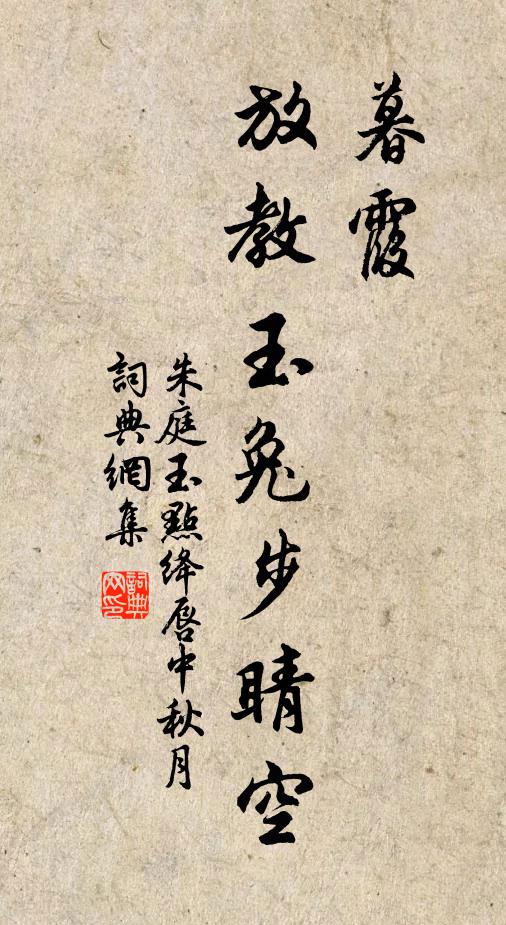 暮霞
放教玉兔步晴空
朱庭玉點絳唇中秋月
詞典網集
詞典網印